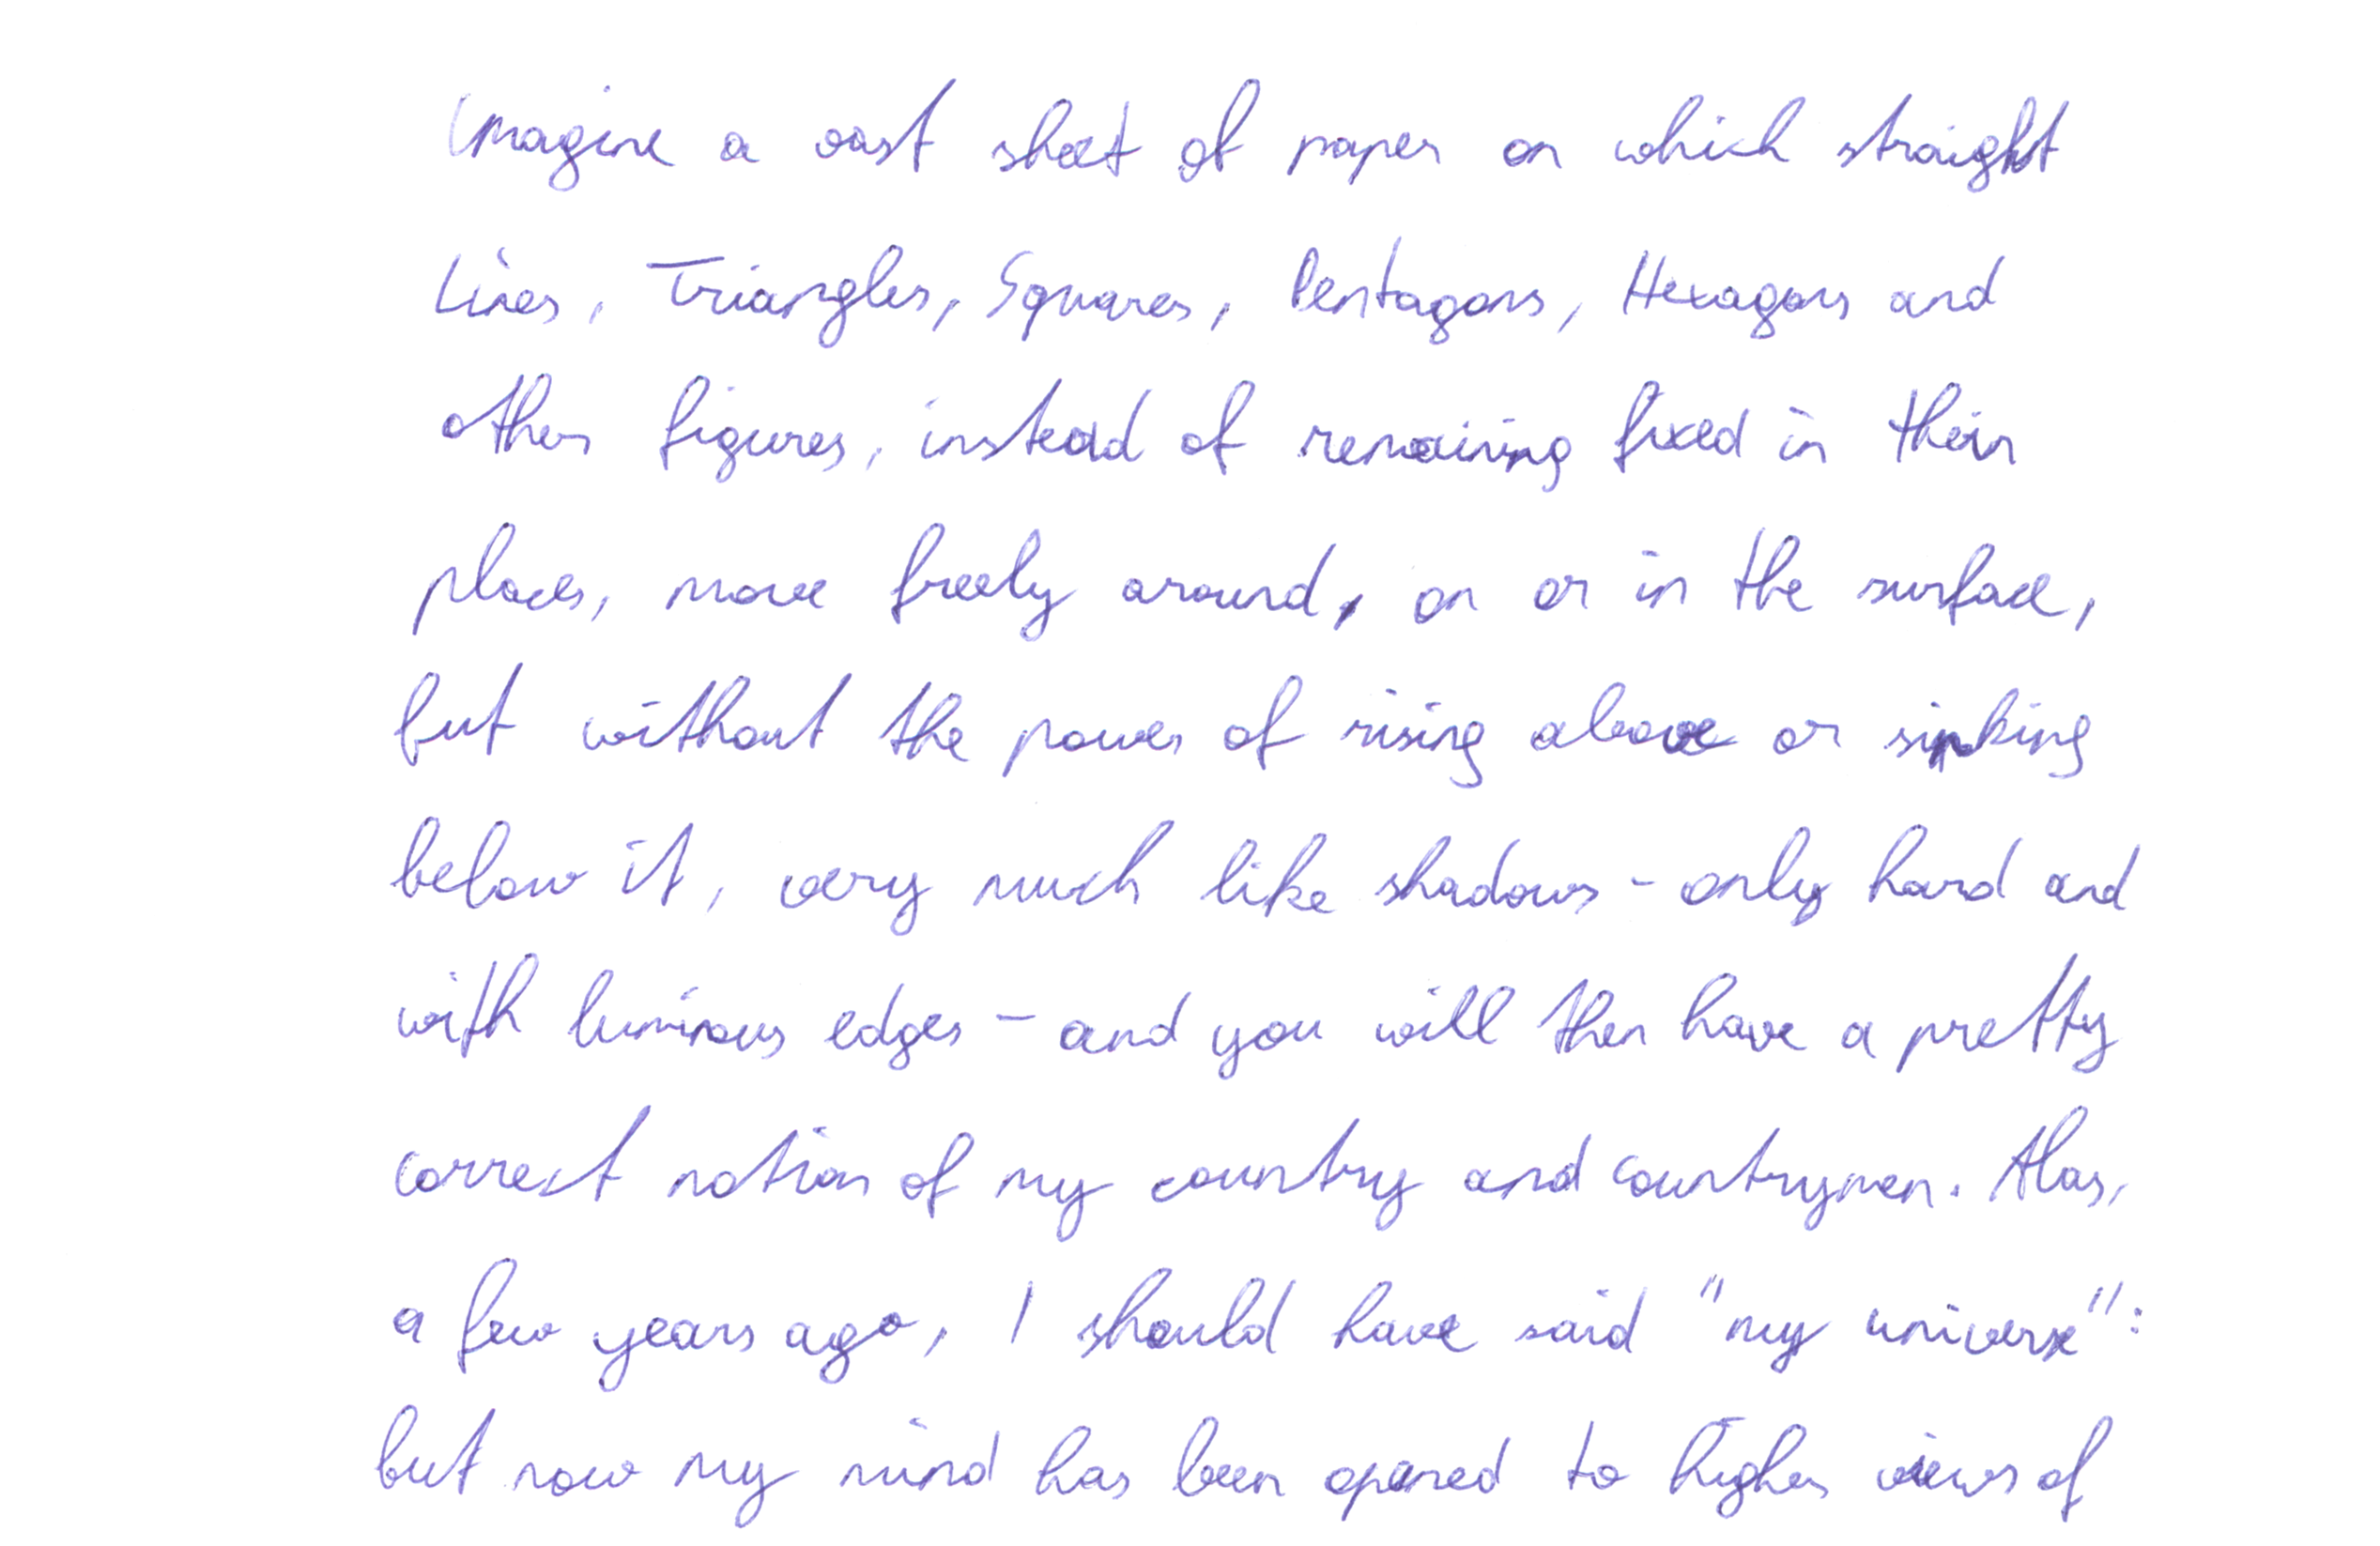 Imagine a vast sheet of paper on which straight
Lines, Triangles, Squares, Pentagons, Hexagons and
other figures, instead of remaining fixed in their
places, move freely around, on or in the surface,
but without the power of rising above or sinking
below it, very much like shadows - only hard and
with luminous edges - and you will then have a pretty
correct notion of my country and countrymen. Alas,
a few years ago, I should have said "my universe":
but now my mind has been opened to higher views of